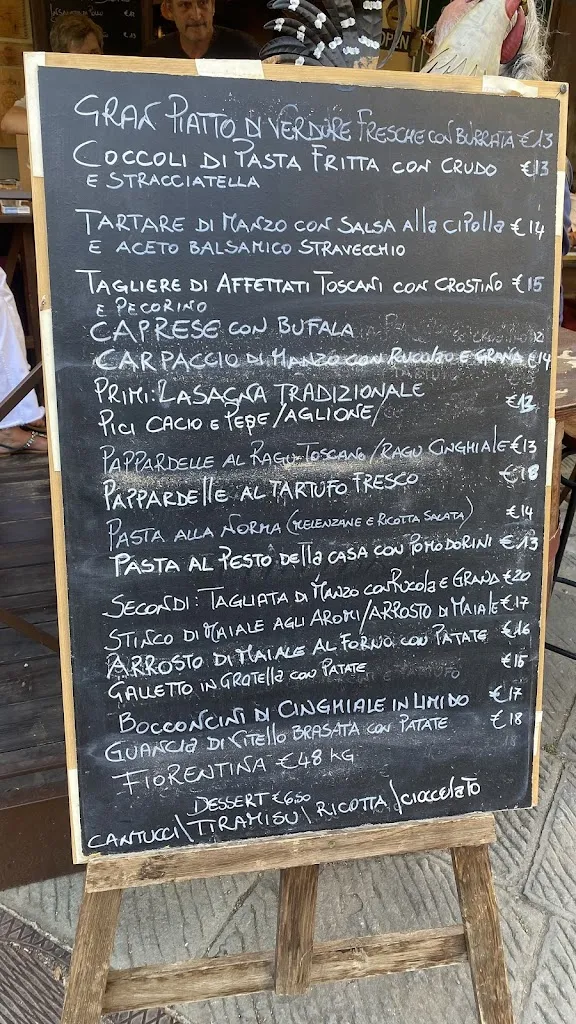 OPEN
GRAN PIATTO DI VERDURE FRESCHE CON BURRATA €13
COCCOLI DI PASTA FRITTA CON CRUDO €13
E STRACCIATELLA
TARTARE DI MANZO CON SALSA alla CIPOLLA €14
E ACETO BALSAMICO STRAVECCHIO
TAGLIERE DI AFFETTATI TOSCANI CON CROSTINO €15
E PECORINO
CAPRESE CON BUFALA
CARPACCIO DI MANZO CON RUCOLA E GRANA €14
PRIMI: LASAGNA TRADIZIONALE €13
PICI CACIO E PEPE/AGLIONE/
PAPPARDELLE AL RAGU TOSCANO/RAGU CINGHIALE €13
PAPPARDELLE AL TARTUFO FRESCO €18
PASTA ALLA NORMA (MELENZANE E RICOTTA SALATA) €14
PASTA AL PESTO DELLA CASA CON POMODORINI €13
SECONDI: TAGLIATA DI MANZO CON RUCOLA E GRANA €20
STINCO DI MAIALE AGLI AROMI/ARROSTO DI MAIALE €17
ARROSTO DI MAIALE AL FORNO CON PATATE €16
GALLETTO IN GRATELLA CON PATATE €15
BOCCONCINI DI CINGHIALE IN UMIDO €17
GUANCIA DI VITELLO BRASATA CON PATATE €18
FIORENTINA €48 KG
DESSERT €6,50
CANTUCCI\TIRAMISU\RICOTTA/CIOCCELATO